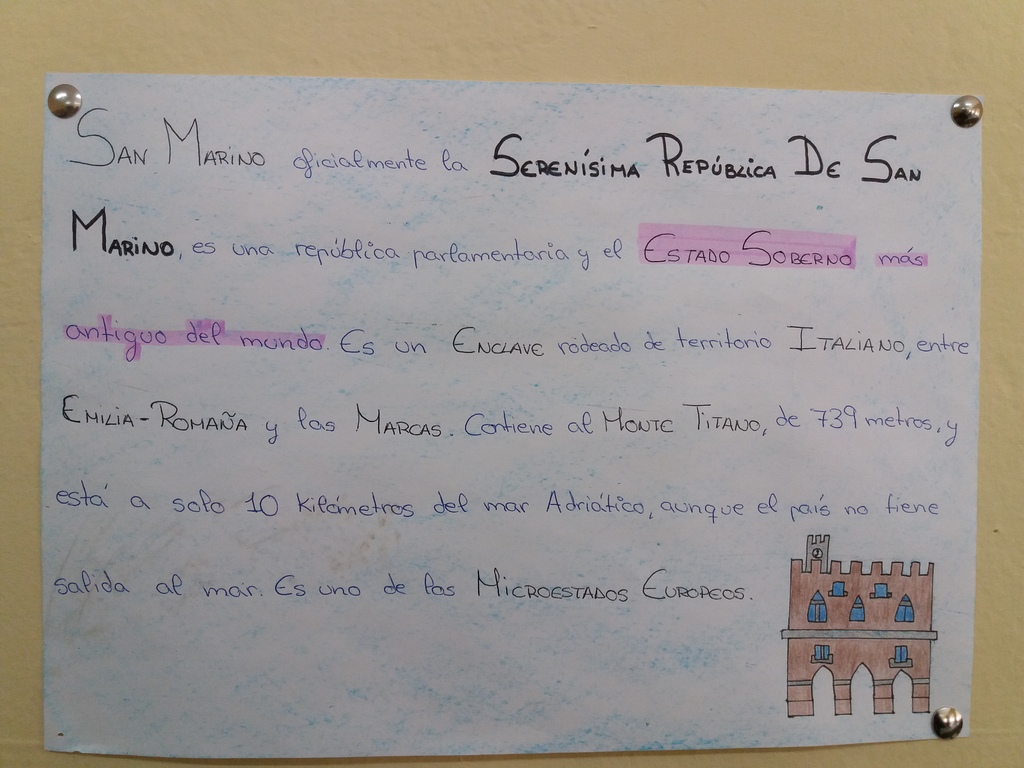 San Marino oficialmente la Serenísima República De San
Marino, es una república parlamentaria y el Estado Soberno más
antiguo del mundo. Es un Enclave rodeado de territorio Italiano, entre
Emilia-Romaña y las Marcas. Contiene al Monte Titano, de 739 metros, y
está a solo 10 Kilómetros del mar Adriático, aunque el país no tiene
salida al mar. Es uno de las Microestados Europeos.